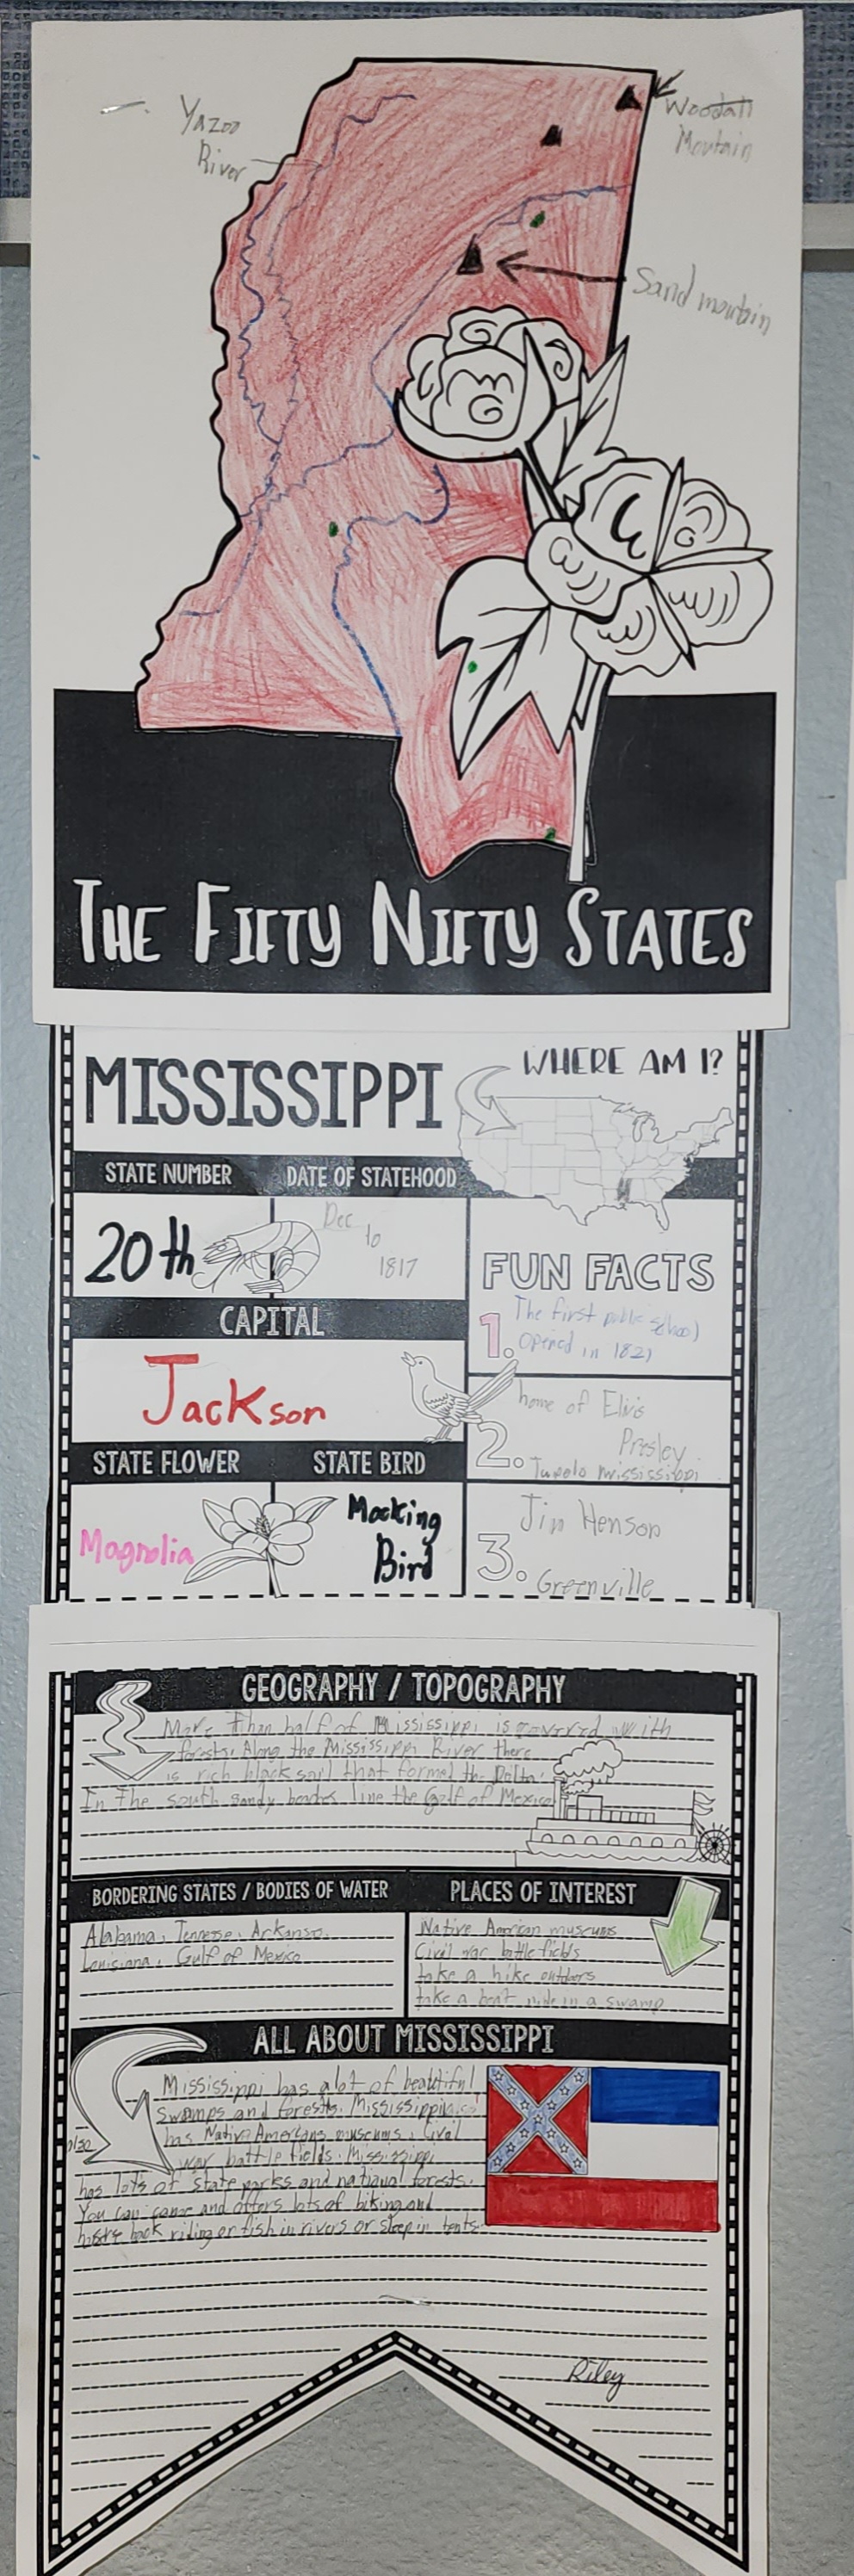 Yazoo
River
Woodall
Moutain
Sand moutain
THE FIFTY NIFTY STATES
MISSISSIPPI
WHERE AM I?
STATE NUMBER
DATE OF STATEHOOD
20th
Dec
10
1817
FUN FACTS
1. The first public school
opened in 1821
CAPITAL
Jackson
2. home of Elvis
Presley
Tupelo mississippi
STATE FLOWER
STATE BIRD
Magnolia
Mocking
Bird
3. Jim Henson
Greenville
GEOGRAPHY / TOPOGRAPHY
More than half of Mississippi is covered with
forests. Along the Mississippi River there
is rich black soil that formed the Delta.
In the south sandy beaches line the Gulf of Mexico
BORDERING STATES / BODIES OF WATER
Alabama, Tennesse, Arkansa,
Louisiana, Gulf of Mexico
PLACES OF INTEREST
Native American museums
Civil war battle fields
take a hike outdoors
take a boat ride in a swamp
ALL ABOUT MISSISSIPPI
Mississippi has alot of beautiful
swamps and forests. Mississippi
also has Native Americans museums, Civil
war battle fields. Mississippi
has lots of state parks and national forests.
You can camp and offers lots of biking and
horse back riding or fish in rivers or sleep in tents.
Riley